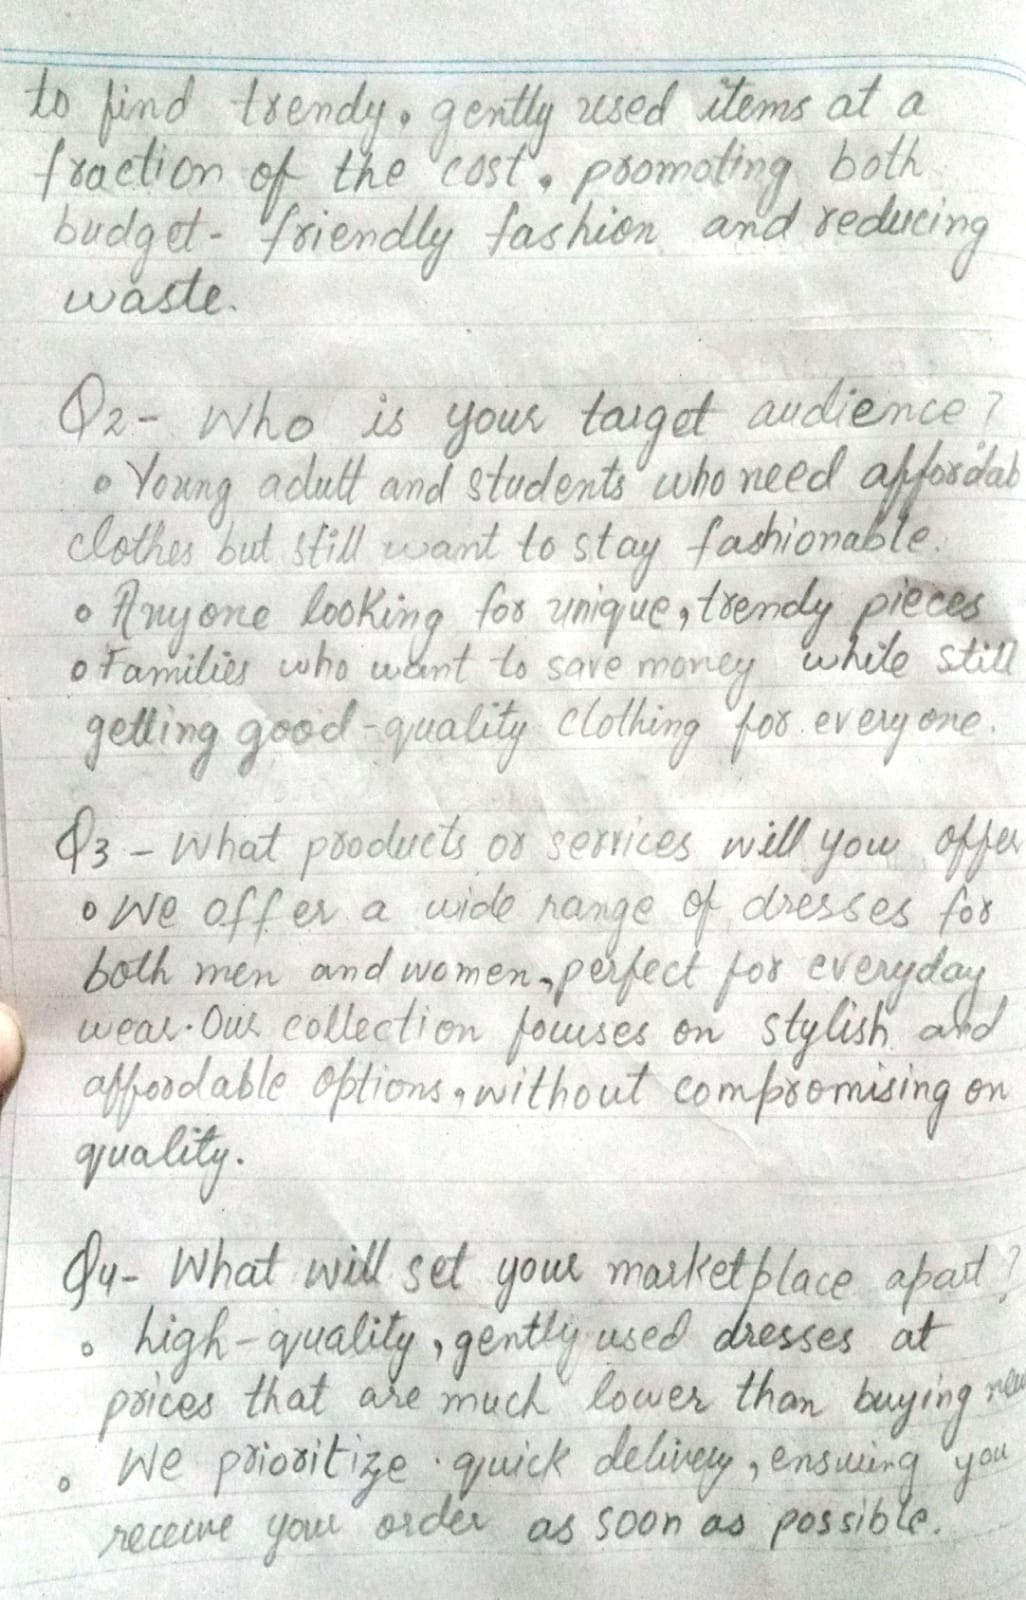 to find trendy, gently used items at a
fraction of the cost, promoting both
budget- friendly fashion and reducing
waste.
Q2- Who is your target audience?
• Young adult and students who need affordab
clothes but still want to stay fashionable.
• Anyone looking for unique, trendy pieces
• Families who want to save money while still
getting good-quality clothing for everyone.
Q3 - What products or services will you offer
• We offer a wide range of dresses for
both men and women, perfect for everyday
wear. Our collection focuses on stylish and
affordable options, without compromising on
quality.
Q4- What will set your marketplace apart?
• high-quality, gently used dresses at
prices that are much lower than buying new
• We prioritize quick delivery, ensuring you
receive your order as soon as possible.